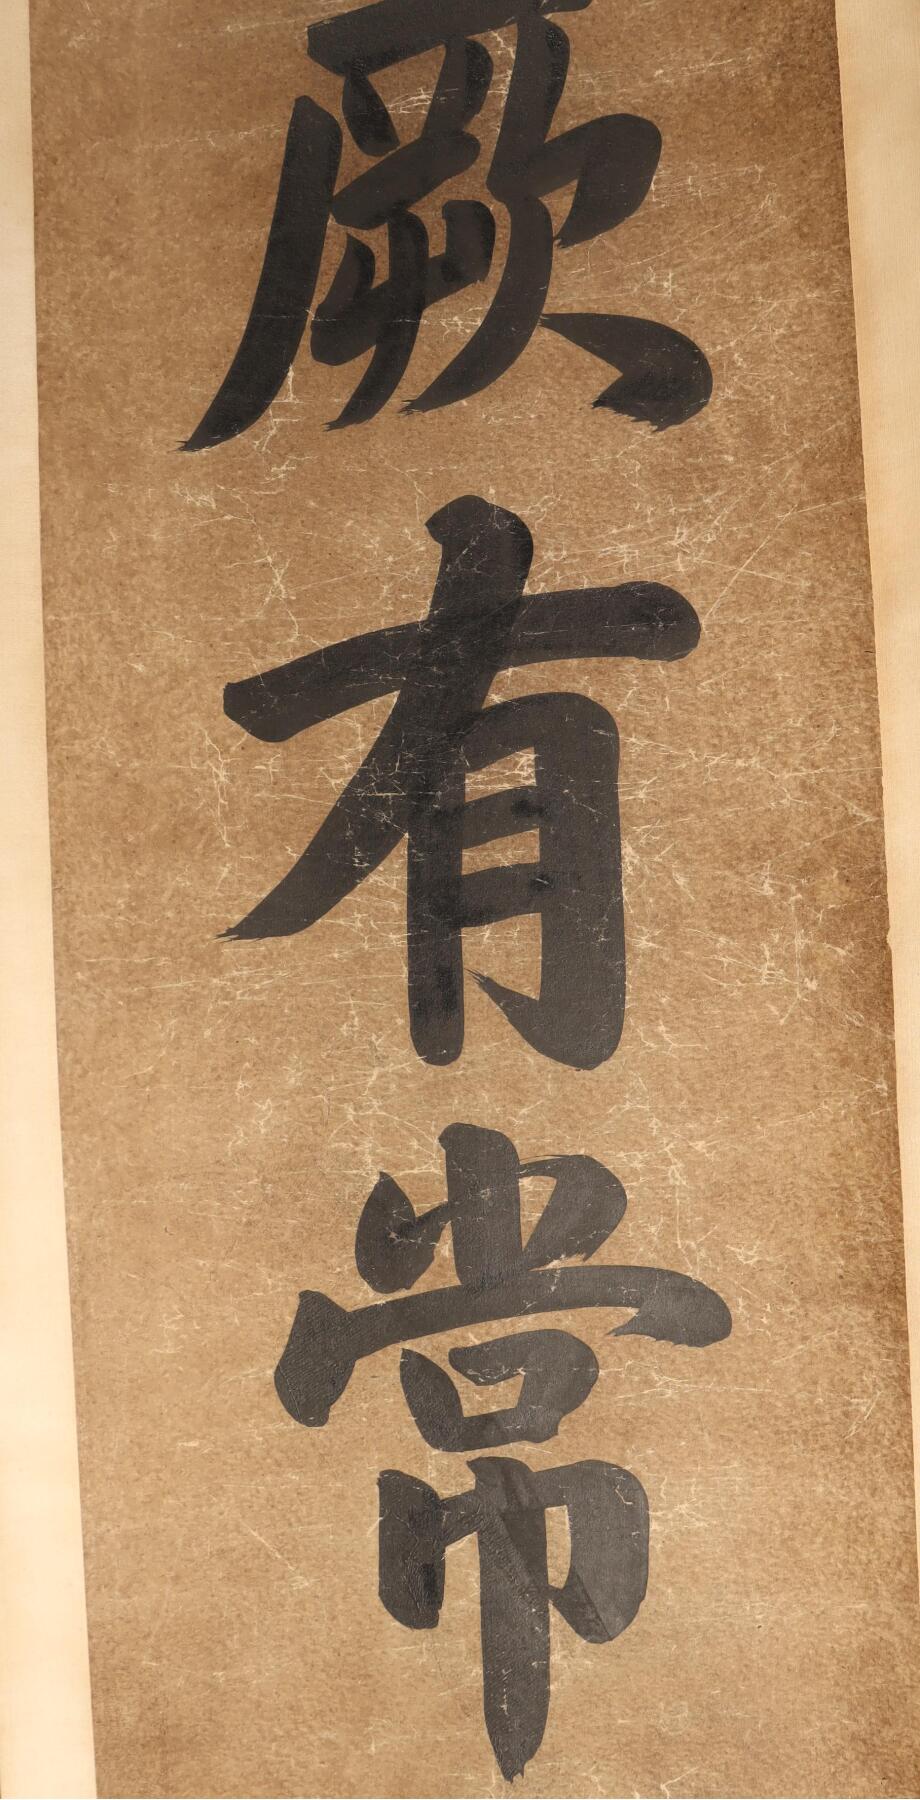 厥有常